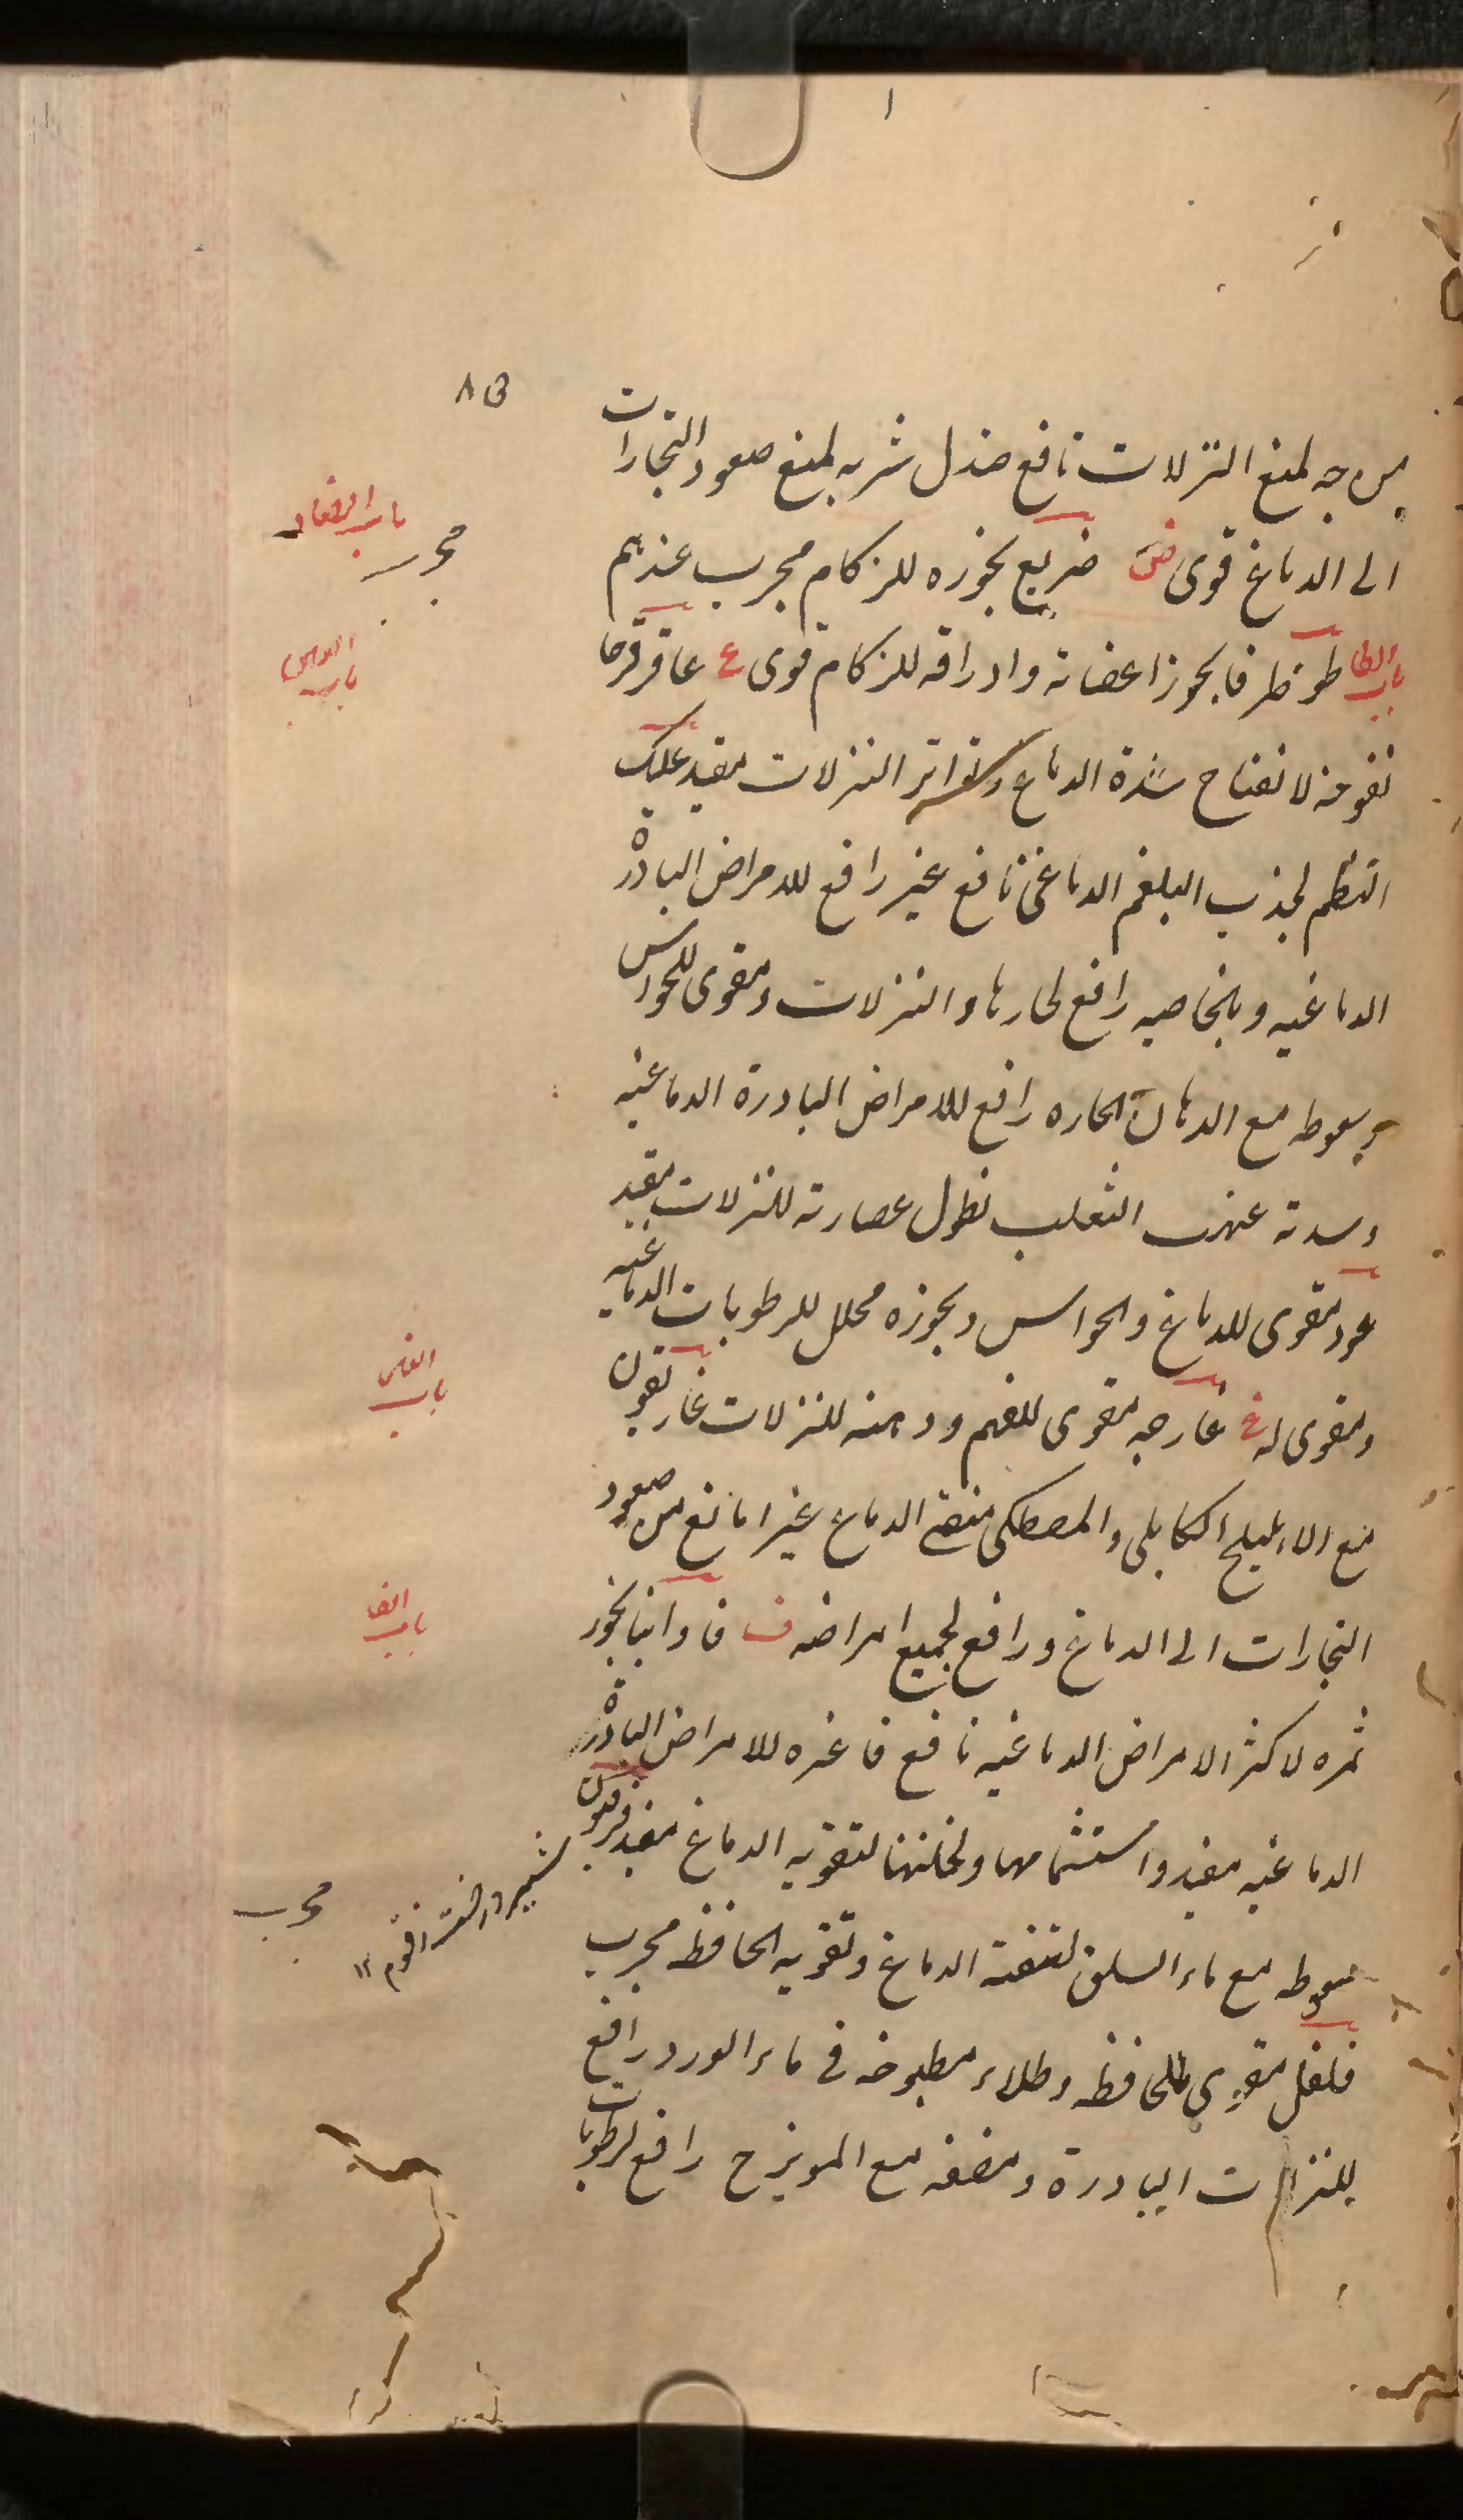 ٨٥
لمنع النزلات نافع صندل شربه لمنع صعود البخارات
الى الدماغ قوى ض ضريع بخوره للزكام مجرب عندهم
باب الضاد
مجرب
باب الطا طوطرفا بخور اعضانه واوراقه للزكام قوى ع عاقرقرحا
باب العين
نفوخه لانفتاح سدة الدماغ وتواتر النزلات مفيد علك
البطم لجذب البلغم الدماغى نافع عنبر رافع للامراض الباردة
الدماغيه وبالخاصيه رافع لحارها والنزلات ومقوى للحواس
وسعوطه مع الدهان الحاره رافع للامراض الباردة الدماغيه
وسدته عنب الثعلب نطول عصارته للنزلات مفيد
عود مقوى للدماغ والحواس وبخوره محلل للرطوبات الدماغيه
ومقوى له غ غارجه مقوى للفهم ودهنه للنزلات غاريقون
باب الغين
مع الاهليلج الكابلى والمصطكى منقى الدماغ غيرا مانع من صعود
البخارات الى الدماغ ورافع لجميع امراضه ف فاوانيا بخور
باب الفا
ثمره لاكثر الامراض الدماغيه نافع فاغره للامراض الباردة
الدماغيه مفيد واستشمامها ولخلختها لتقوية الدماغ مفيد فرفيون
سعوطه مع ماء السلق لتنقية الدماغ وتقويه الحافظه مجرب
مجرب
فلفل مقوى للحافظه وطلاء مطبوخه فى ماء الورد رافع
للنزلات الباردة ومضغه مع المويزج رافع لرطوبات